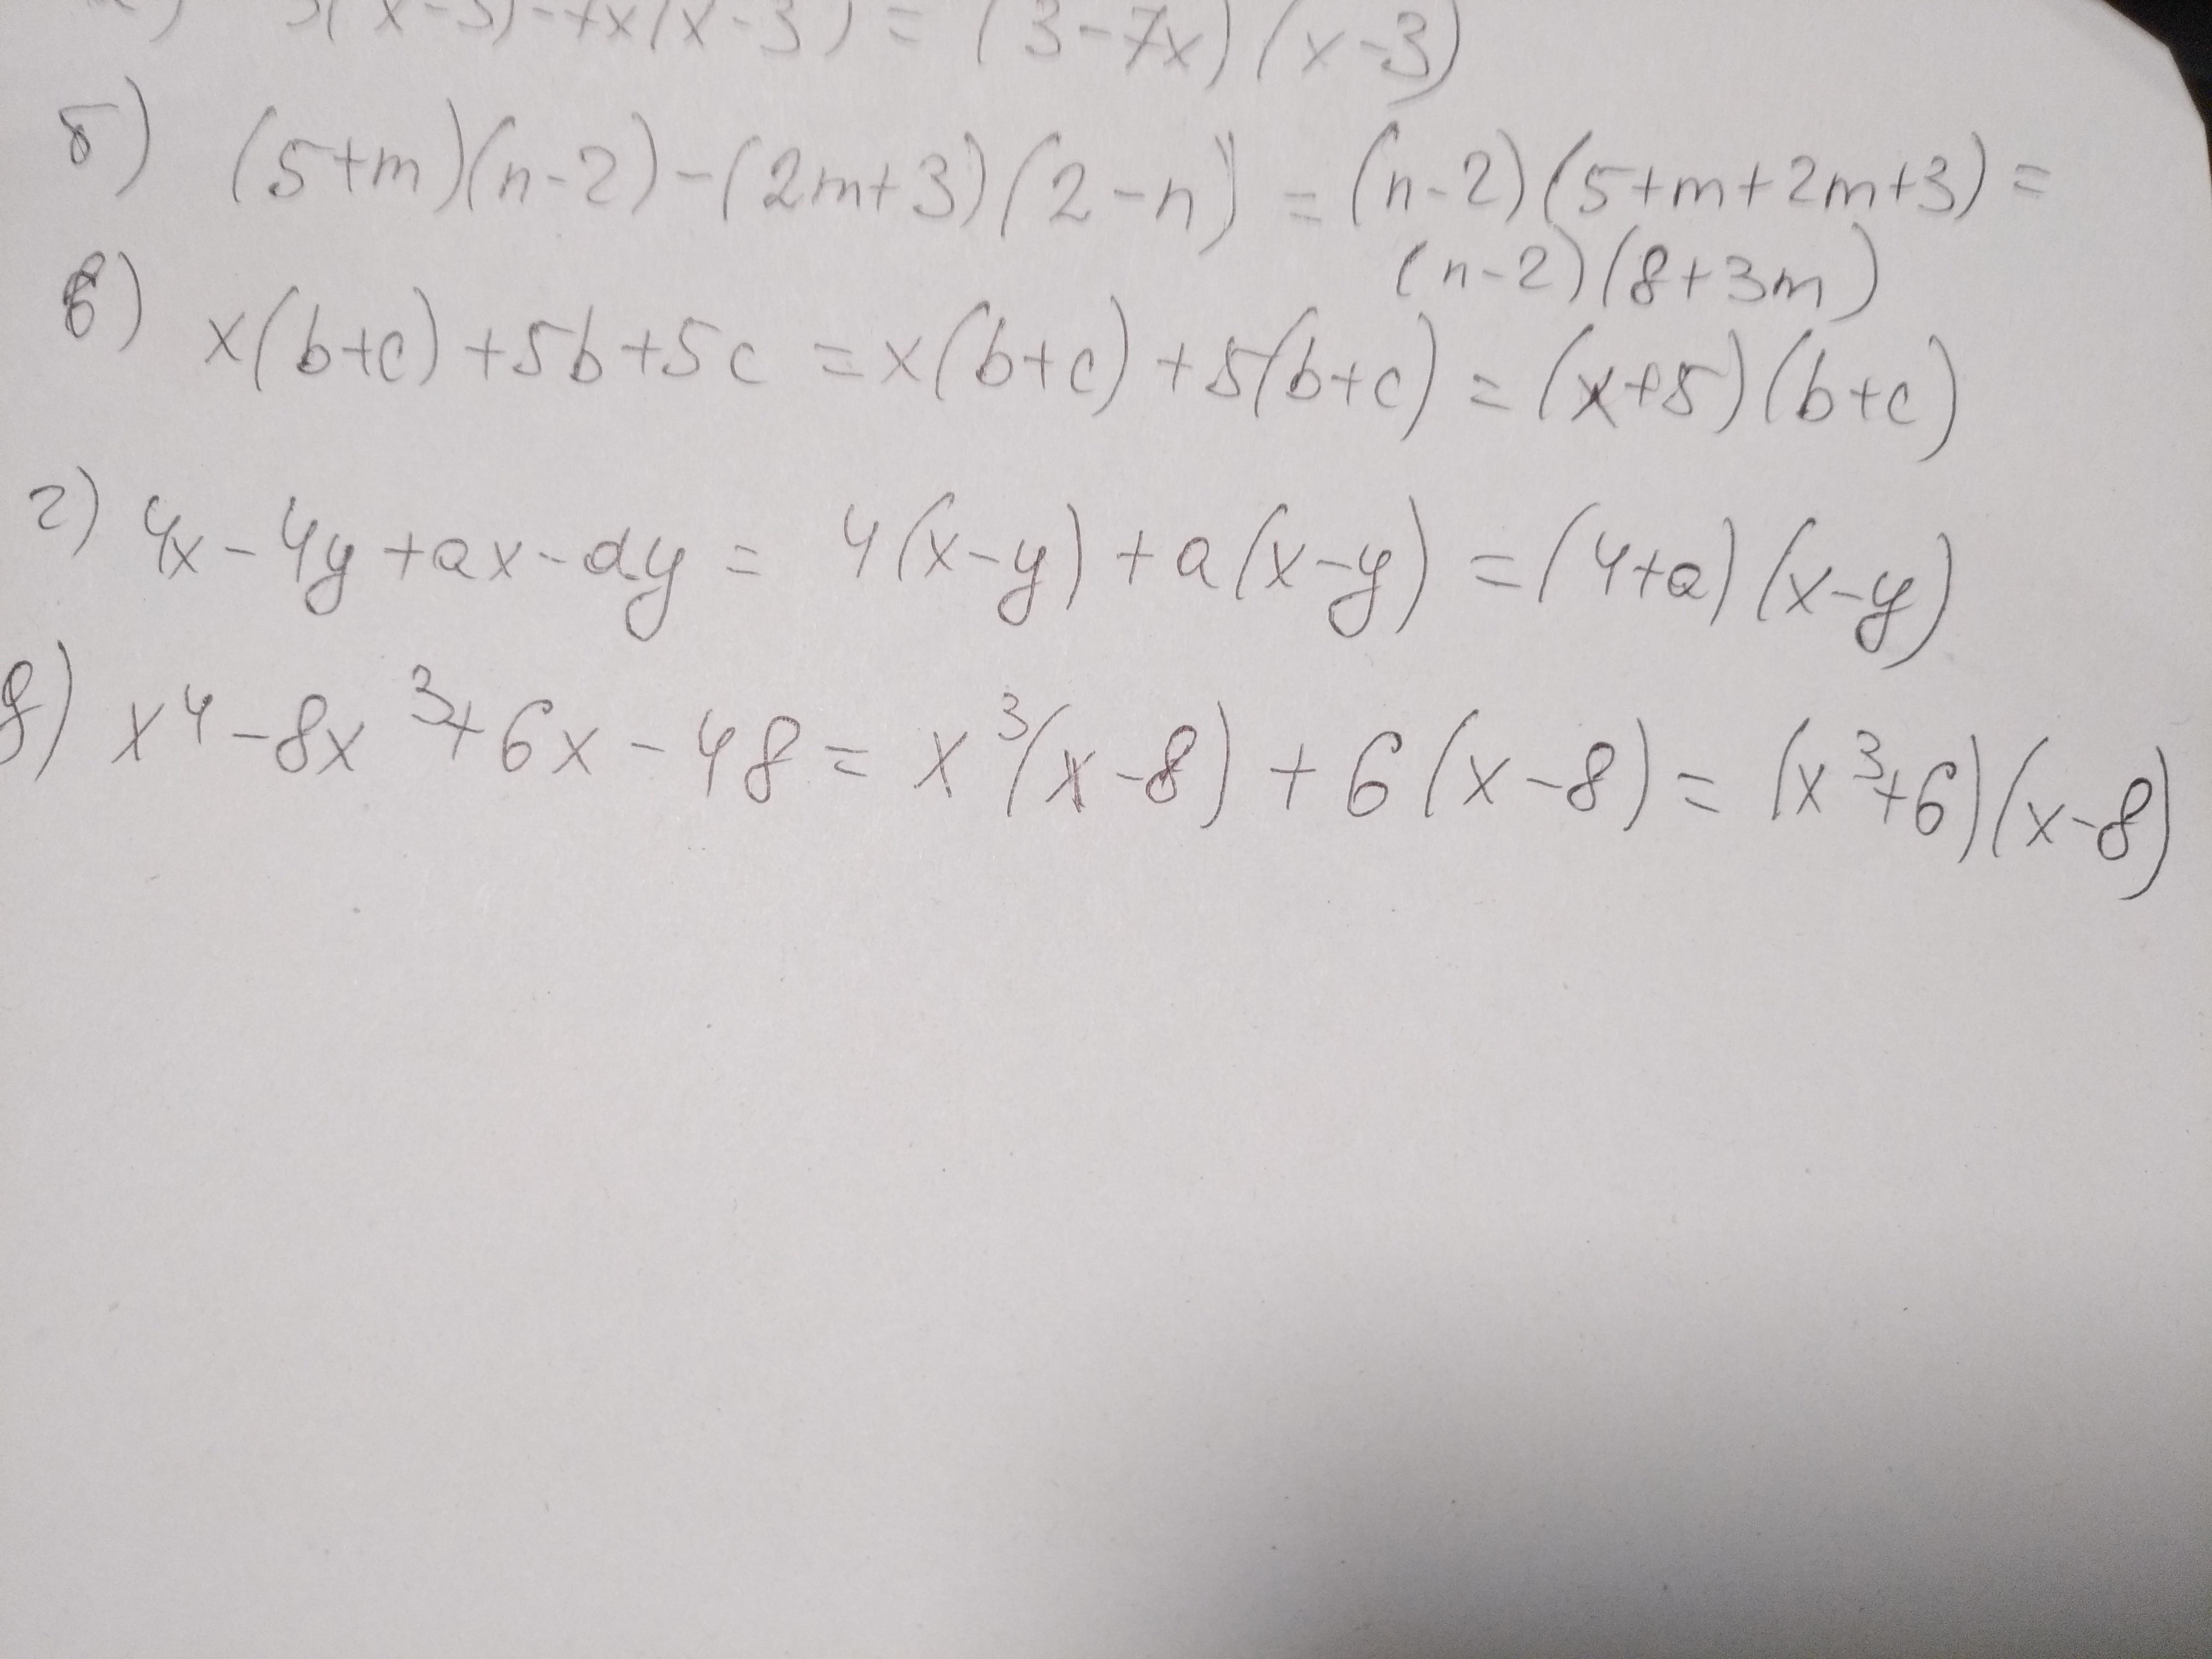 (x-3)-7x(x-3) = (3-7x)(x-3)
б) (5+m)(n-2)-(2m+3)(2-n) = (n-2)(5+m+2m+3) =
(n-2)(8+3m)
в) x(b+c)+5b+5c = x(b+c)+5(b+c) = (x+5)(b+c)
г) 4x-4y+ax-ay = 4(x-y)+a(x-y) = (4+a)(x-y)
д) x⁴-8x³+6x-48 = x³(x-8)+6(x-8) = (x³+6)(x-8)